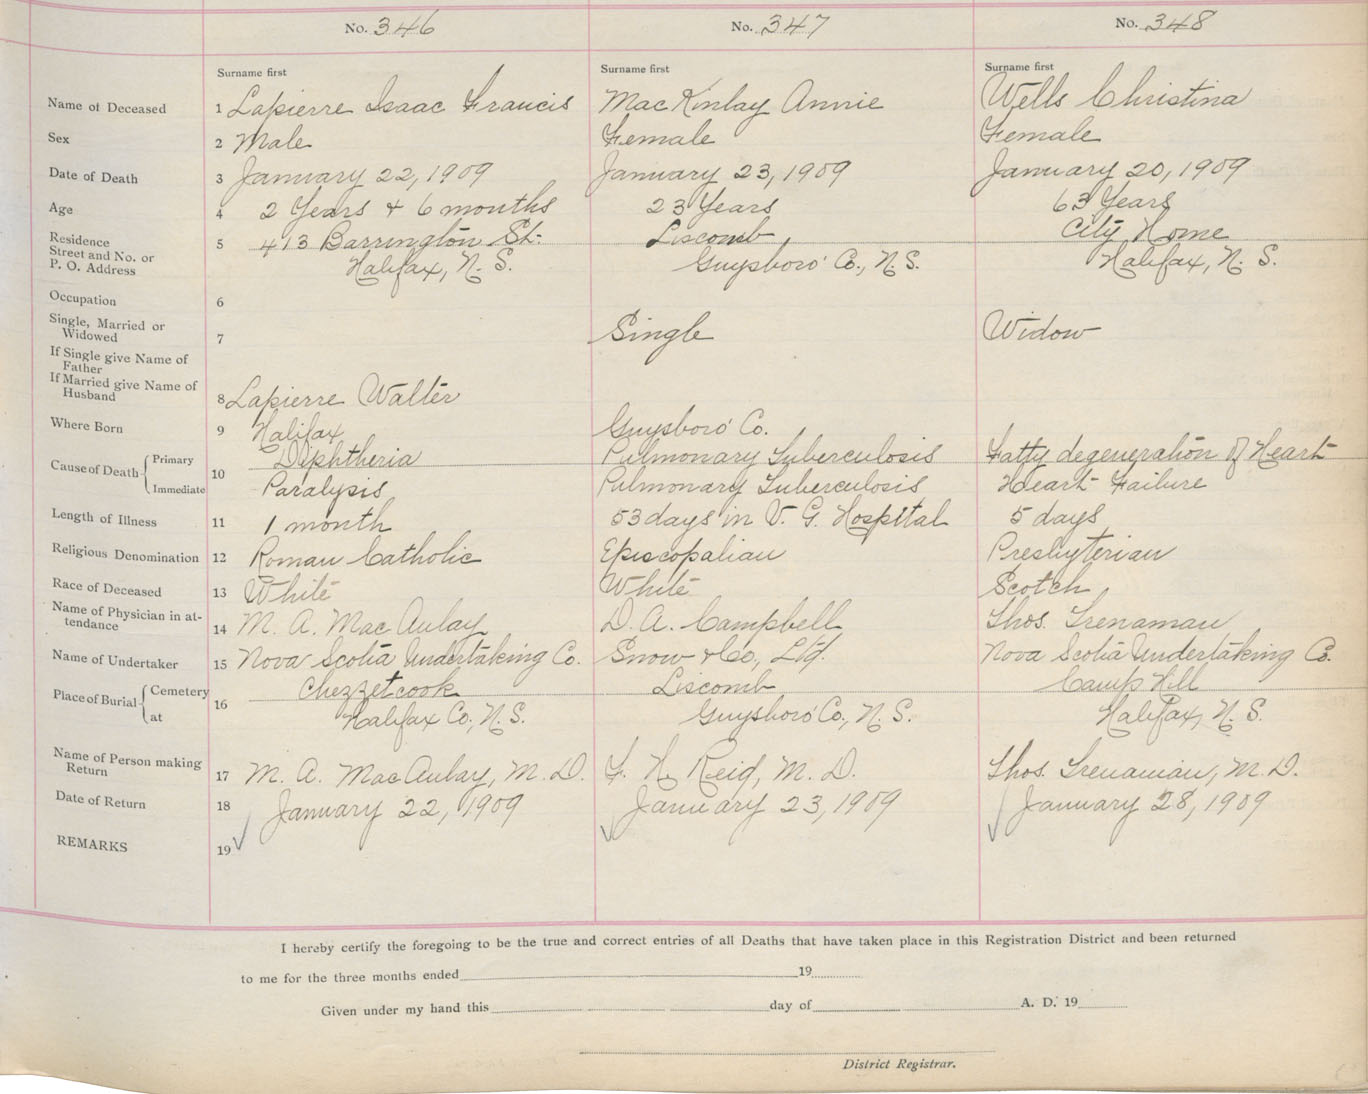 No. 346 No. 347 No. 348
Surname first Surname first Surname first
Name of Deceased 1 Lapierre Isaac Francis MacKinlay Annie Wells Christina
Sex 2 Male Female Female
Date of Death 3 January 22, 1909 January 23, 1909 January 20, 1909
Age 4 2 Years & 6 months 23 Years 63 Years
Residence 5 413 Barrington St. Liscomb, City Home
Street and No. or
P. O. Address Halifax, N. S. Guysboro' Co., N. S. Halifax, N. S.
Occupation 6
Single, Married or
Widowed 7 Single Widow
If Single give Name of
Father
If Married give Name of
Husband 8 Lapierre Walter
Where Born 9 Halifax Guysboro' Co.
Cause of Death Primary 10 Diphtheria Pulmonary Tuberculosis Fatty degeneration of Heart
Immediate Paralysis Pulmonary Tuberculosis Heart Failure
Length of Illness 11 1 month 53 days in V. G. Hospital 5 days
Religious Denomination 12 Roman Catholic Episcopalian Presbyterian
Race of Deceased 13 White White Scotch
Name of Physician in at-
tendance 14 M. A. MacAulay D. A. Campbell Thos. Trenaman
Name of Undertaker 15 Nova Scotia Undertaking Co. Snow & Co., Ltd. Nova Scotia Undertaking Co.
Place of Burial Cemetery 16 Chezzetcook Liscomb, Camp Hill
at Halifax Co., N. S. Guysboro' Co., N. S. Halifax, N. S.
Name of Person making
Return 17 M. A. MacAulay, M. D. F. H. Reid, M. D. Thos. Trenaman, M. D.
Date of Return 18 January 22, 1909 January 23, 1909 January 28, 1909
REMARKS 19
I hereby certify the foregoing to be the true and correct entries of all Deaths that have taken place in this Registration District and been returned
to me for the three months ended 19
Given under my hand this day of A. D. 19
District Registrar.